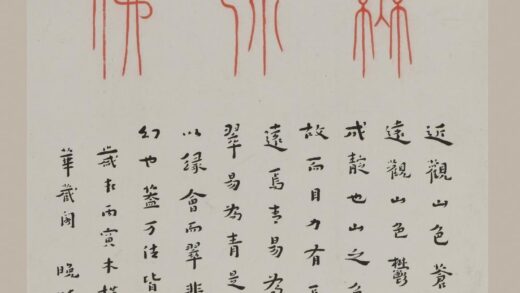 近觀山色蒼
遠觀山色鬱
成靛也山之色
故而目力有
遠焉青易為
翠易為青是
以緣會而翠
幻也蓋万法皆
歲在丙寅木
華藏閣 晚